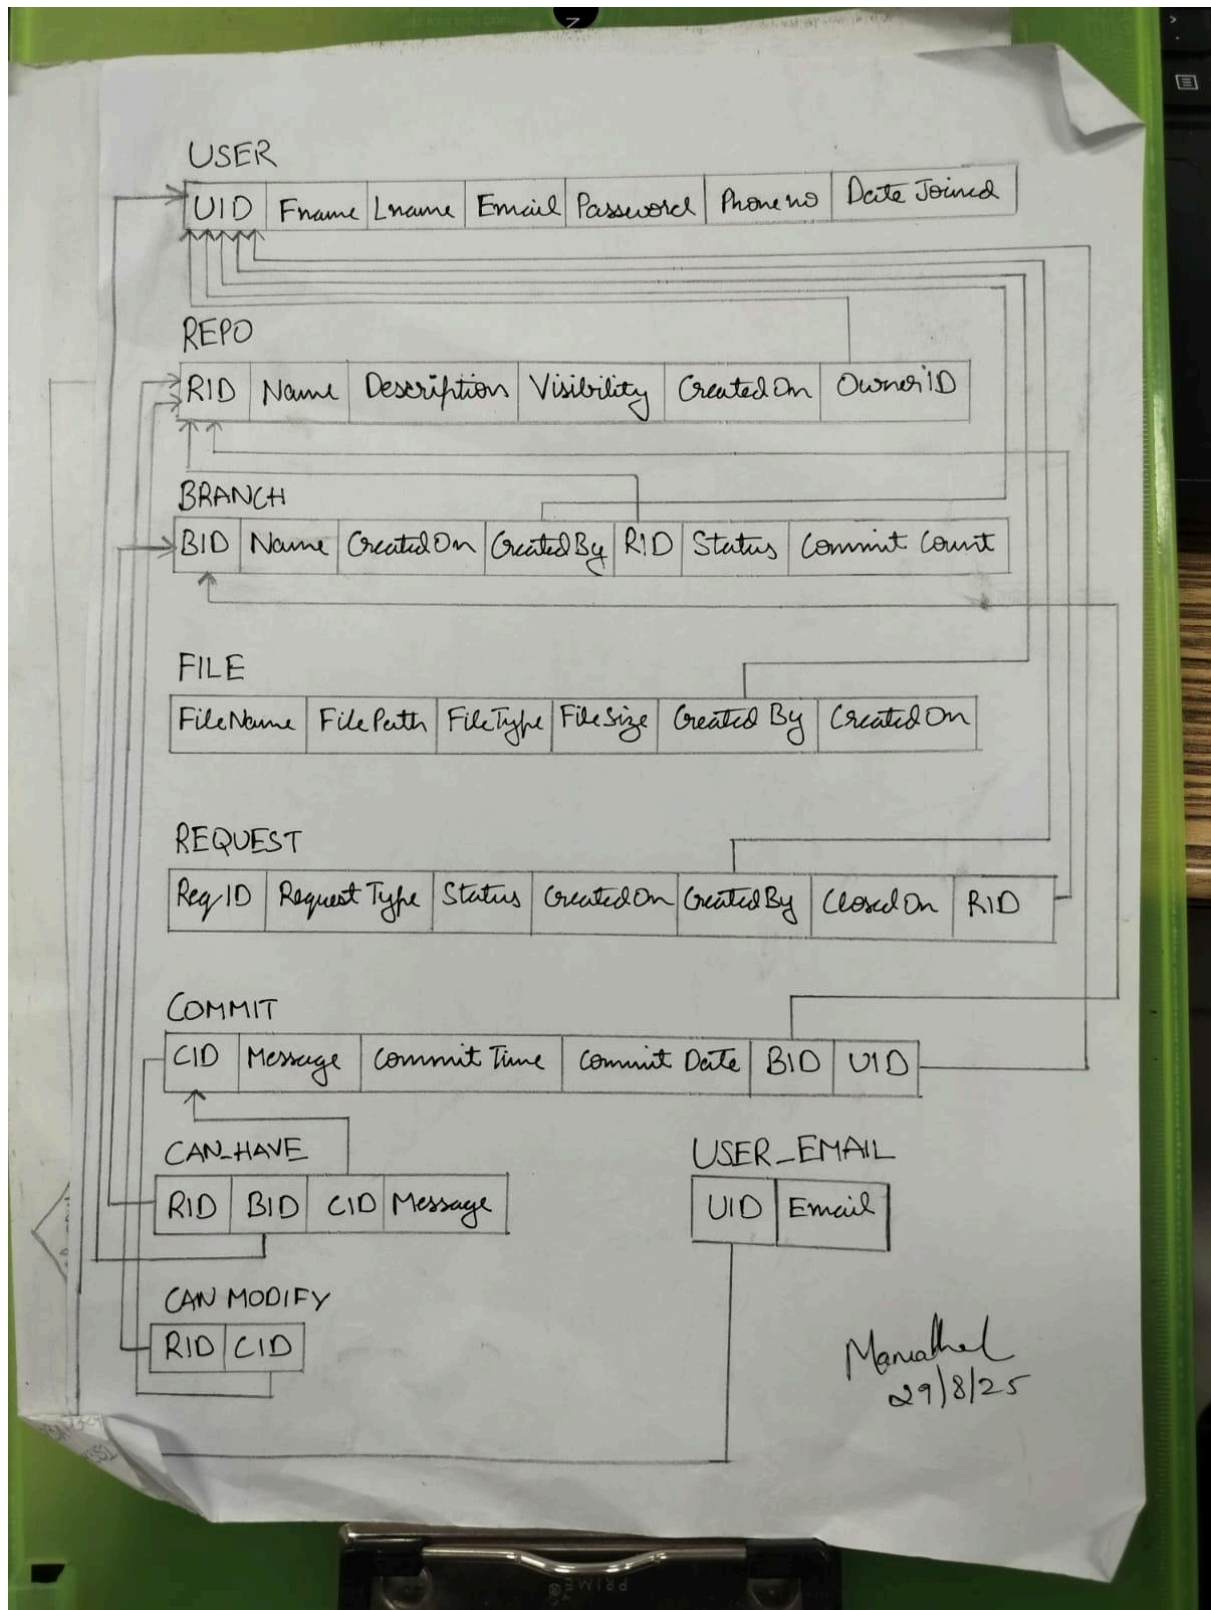 USER
UID Fname Lname Email Password Phone no Date Joined
REPO
RID Name Description Visibility Created On Owner ID
BRANCH
BID Name Created On Created By RID Status Commit Count
FILE
File Name File Path File Type File Size Created By Created On
REQUEST
Req ID Request Type Status Created On Created By Closed On RID
COMMIT
CID Message Commit Time Commit Date BID UID
CAN_HAVE
RID BID CID Message
USER_EMAIL
UID Email
CAN MODIFY
RID CID
29/8/25
PRIME